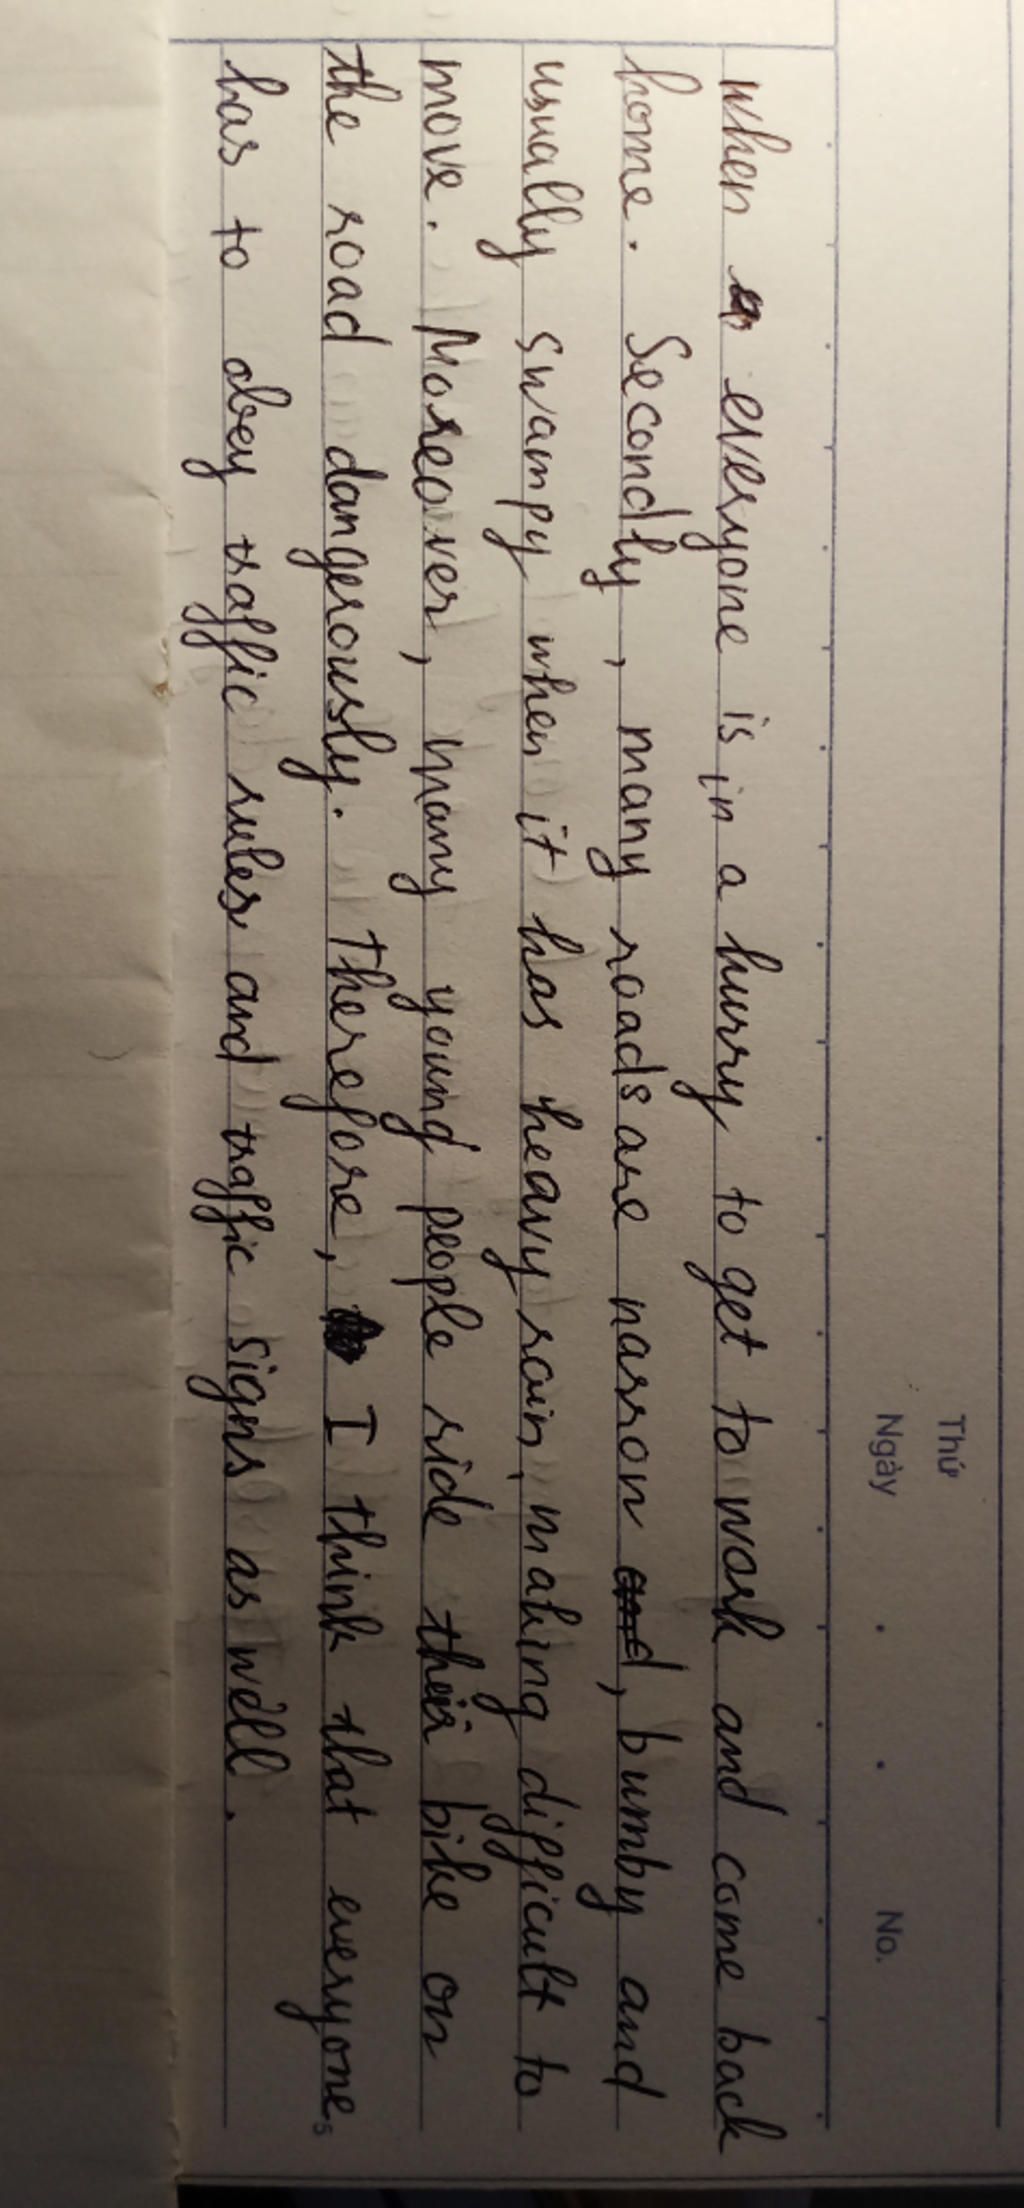 Thứ
Ngày . . No.
when everyone is in a hurry to get to work and come back
home. Secondly, many roads are narron and, bumby and
usually swampy when it has heavy rain, making difficult to
move. Moreover, many young people ride their bike on
the road dangerously. Therefore, I think that everyone
has to obey traffic rules and traffic signs as well.
5